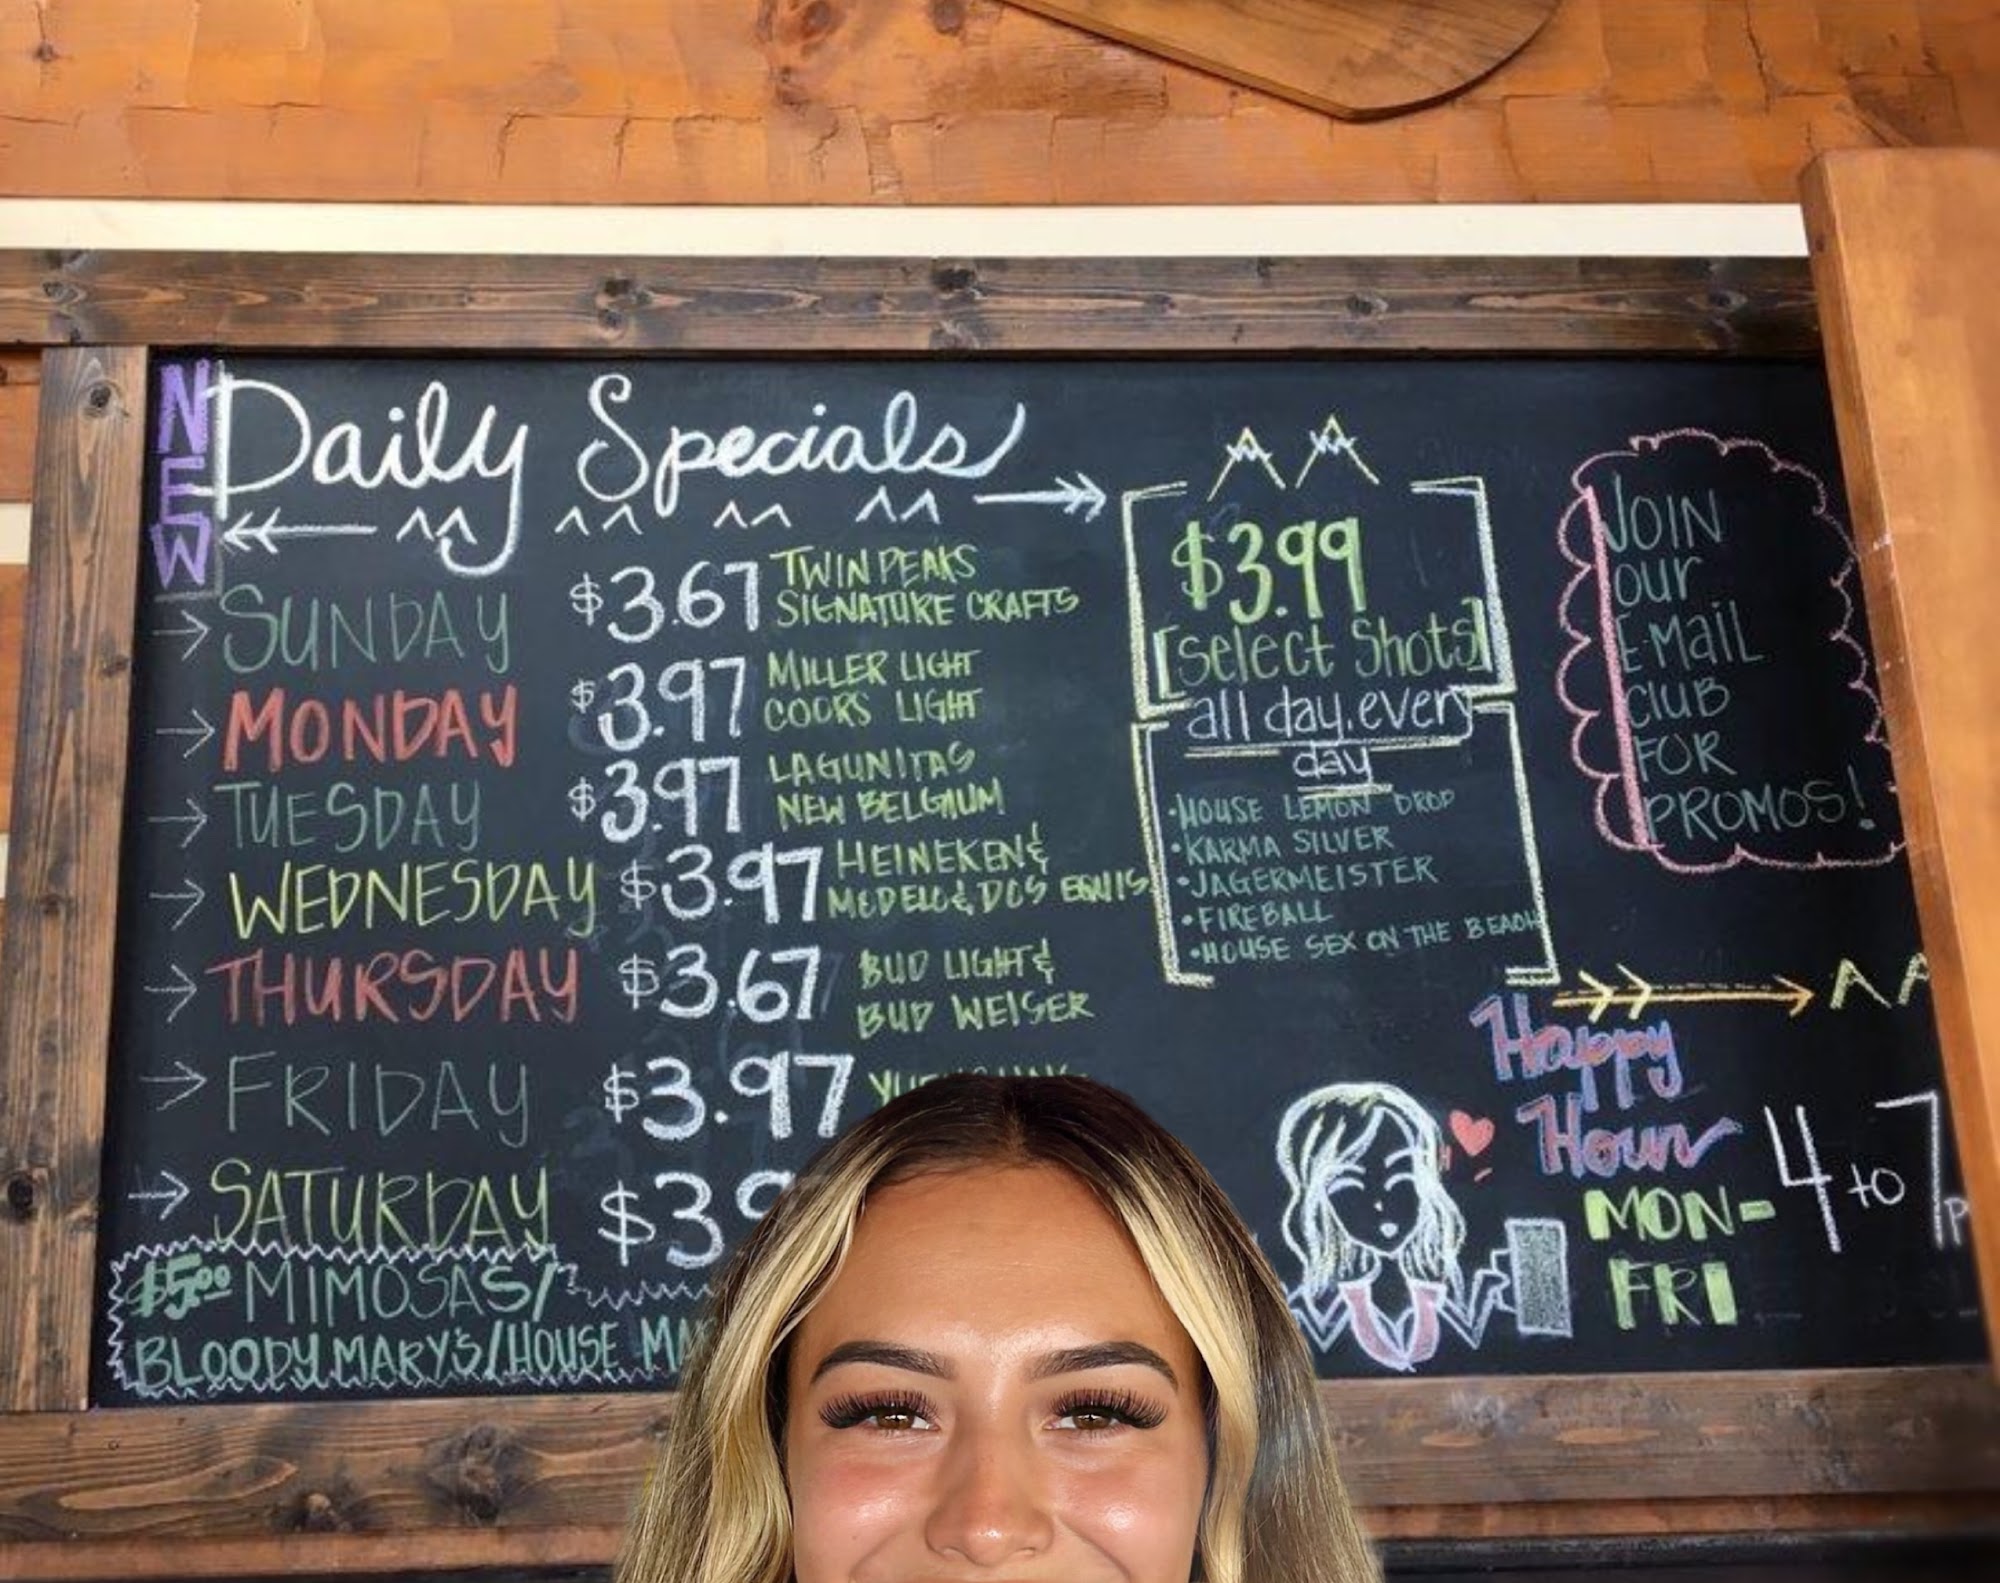 NEW
Daily Specials
SUNDAY $3.67 TWIN PEAKS
SIGNATURE CRAFTS
MONDAY $3.97 MILLER LIGHT
COORS LIGHT
TUESDAY $3.97 LAGUNITAS
NEW BELGIUM
WEDNESDAY $3.97 HEINEKEN &
MODELO & DOS EQUIS
THURSDAY $3.67 BUD LIGHT &
BUD WEISER
FRIDAY $3.97
SATURDAY $3.9
$5.00 MIMOSAS/
BLOODY MARY'S/HOUSE
$3.99
[select shots]
all day.every
day
•HOUSE LEMON DROP
•KARMA SILVER
•JAGERMEISTER
•FIREBALL
•HOUSE SEX ON THE BEACH
JOIN
our
E-Mail
CLUB
FOR
PROMOS!
Happy
Hour
MON-
FRI
4 to 7p